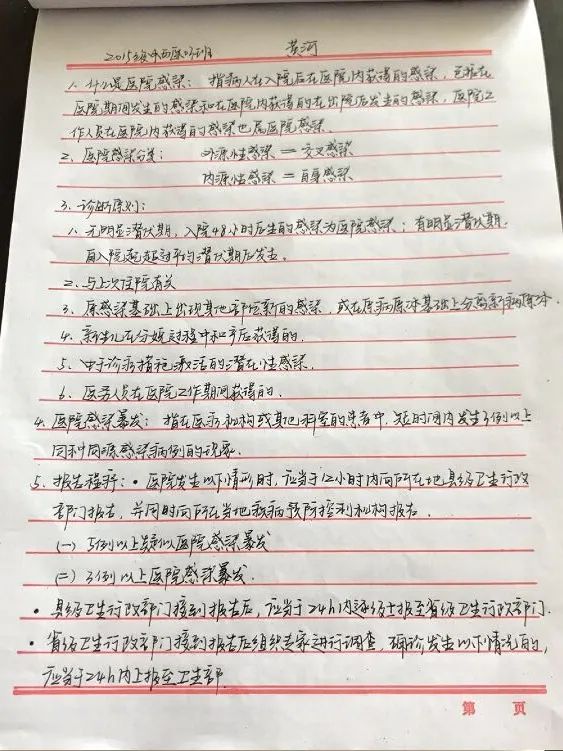 2015级中西医1班 黄河
1. 什么是医院感染：指病人在入院后在医院内获得的感染，包括在
医院期间发生的感染和在医院内获得的在出院后发生的感染，医院工
作人员在医院内获得的感染也属医院感染.
2. 医院感染分类： 外源性感染 = 交叉感染
内源性感染 = 自身感染
3. 诊断原则：
1. 无明显潜伏期，入院48小时后生的感染为医院感染；有明显潜伏期，
自入院起超过平均潜伏期后发生。
2. 与上次住院有关
3. 原感染基础上出现其他部位新的感染，或在原病原体基础上分离新病原体.
4. 新生儿在分娩过程中和产后获得的.
5. 由于诊疗措施激活的潜在性感染.
6. 医务人员在医院工作期间获得的.
4. 医院感染暴发：指在医疗机构或其他科室的患者中，短时间内发生3例以上
同种同源感染病例的现象.
5. 报告程序：• 医院发生以下情形时，应当于12小时内向所在地县级卫生行政
部门报告，并同时向所在当地疾病预防控制机构报告.
(一) 5例以上疑似医院感染暴发
(二) 3例以上医院感染暴发.
• 县级卫生行政部门接到报告后，应当于24h内逐级上报至省级卫生行政部门.
• 省级卫生行政部门接到报告后组织专家进行调查，确诊发生以下情况的，
应当于24h内上报至卫生部
第 页